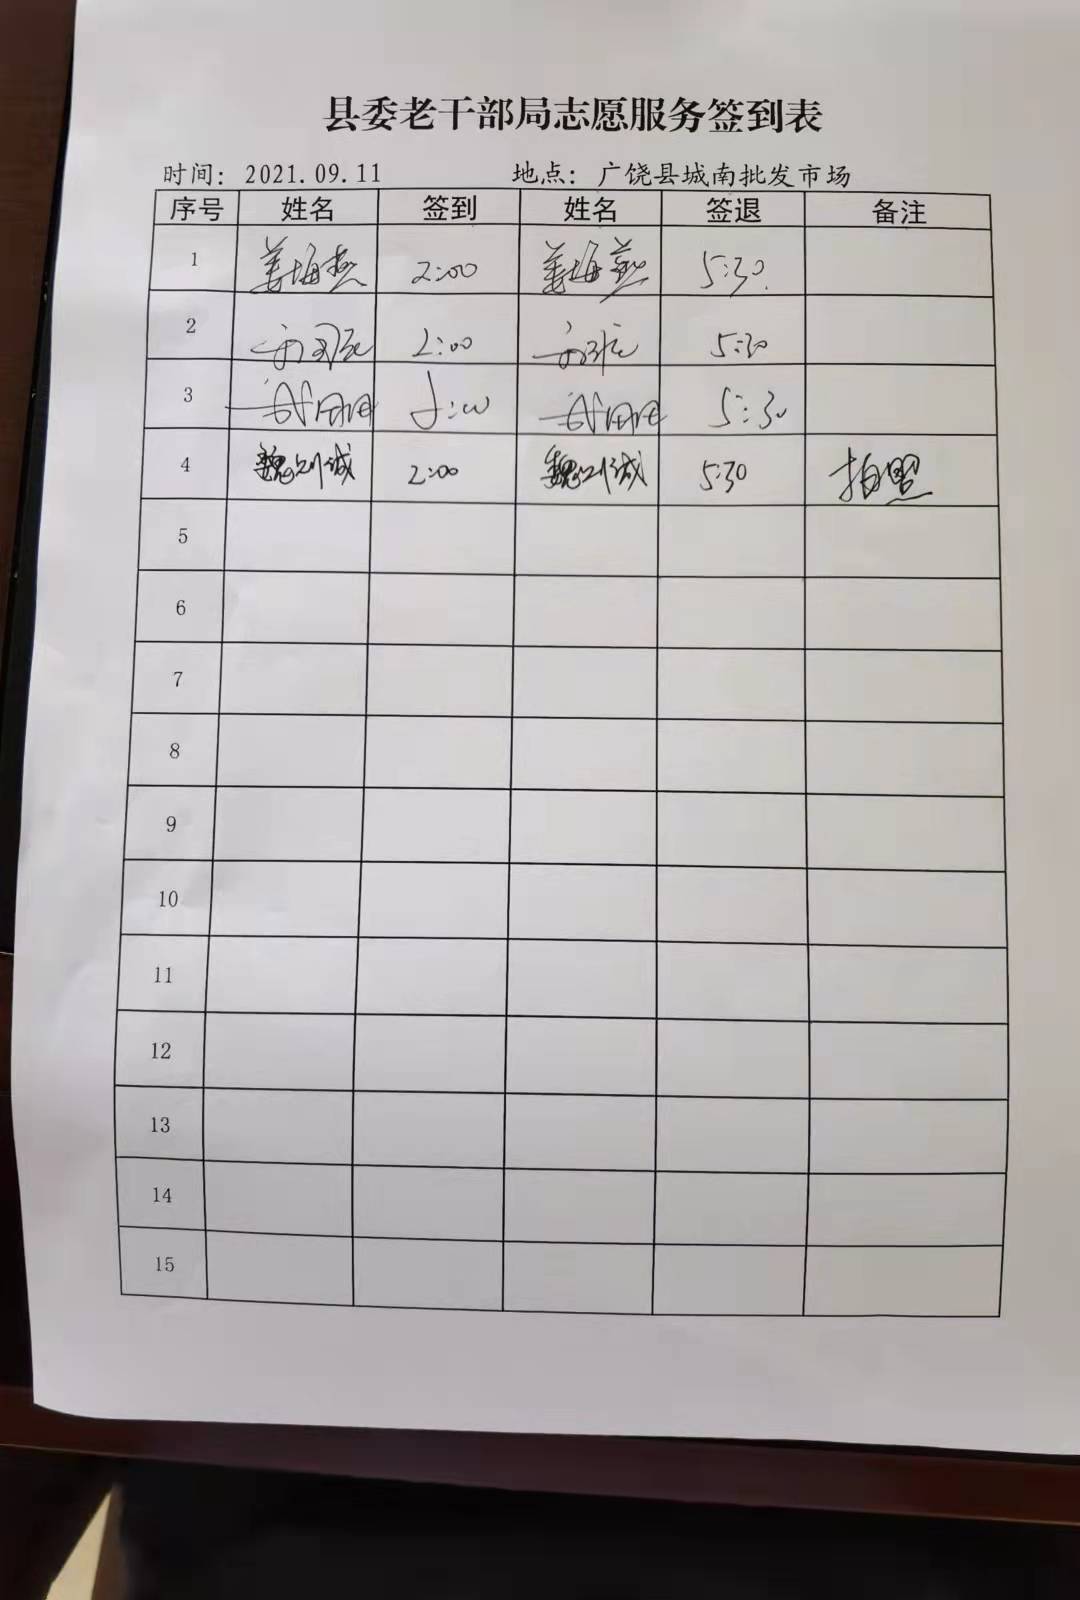 县委老干部局志愿服务签到表
时间: 2021.09.11 地点: 广饶县城南批发市场
序号 姓名 签到 姓名 签退 备注
1 姜海燕 2:00 姜海燕 5:30
2 2:00 5:30
3 2:00 5:30
4 2:00 5:30 拍照
5
6
7
8
9
10
11
12
13
14
15